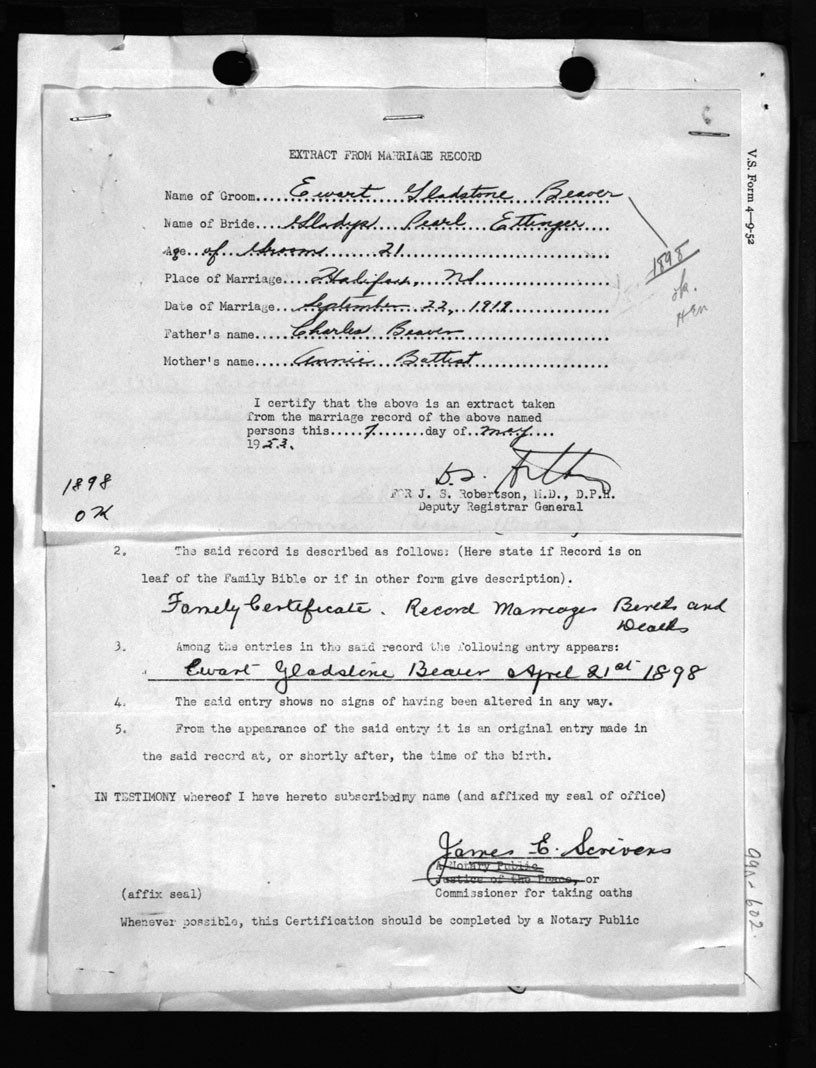 EXTRACT FROM MARRIAGE RECORD
Name of Groom....Ewart Gladstone Beaver
Name of Bride....Gladys Pearl Ettinger
Age..of Groom 21
Place of Marriage....Halifax, NS
Date of Marriage...September 22, 1919
Father's name.....Charles Beaver
Mother's name.....Annie Battist
1898
ok.
HEN
V.S. Form 4-9-52
I certify that the above is an extract taken
from the marriage record of the above named
persons this.....7........day of..May....
1953.
FOR J. S. Robertson, M.D., D.P.H.
Deputy Registrar General
1898
OK
2. The said record is described as follows: (Here state if Record is on
leaf of the Family Bible or if in other form give description).
Famely Certificate. Record Marreages Bereths and
Deaths
3. Among the entries in the said record the following entry appears:
Ewart Gladstone Beaver Aprel 21st 1898
4. The said entry shows no signs of having been altered in any way.
5. From the appearance of the said entry it is an original entry made in
the said record at, or shortly after, the time of the birth.
IN TESTIMONY whereof I have hereto subscribed my name (and affixed my seal of office)
James E. Scrivens
A Notary Public
Justice of the Peace, or
(affix seal) Commissioner for taking oaths
Whenever possible, this Certification should be completed by a Notary Public
99n-602.